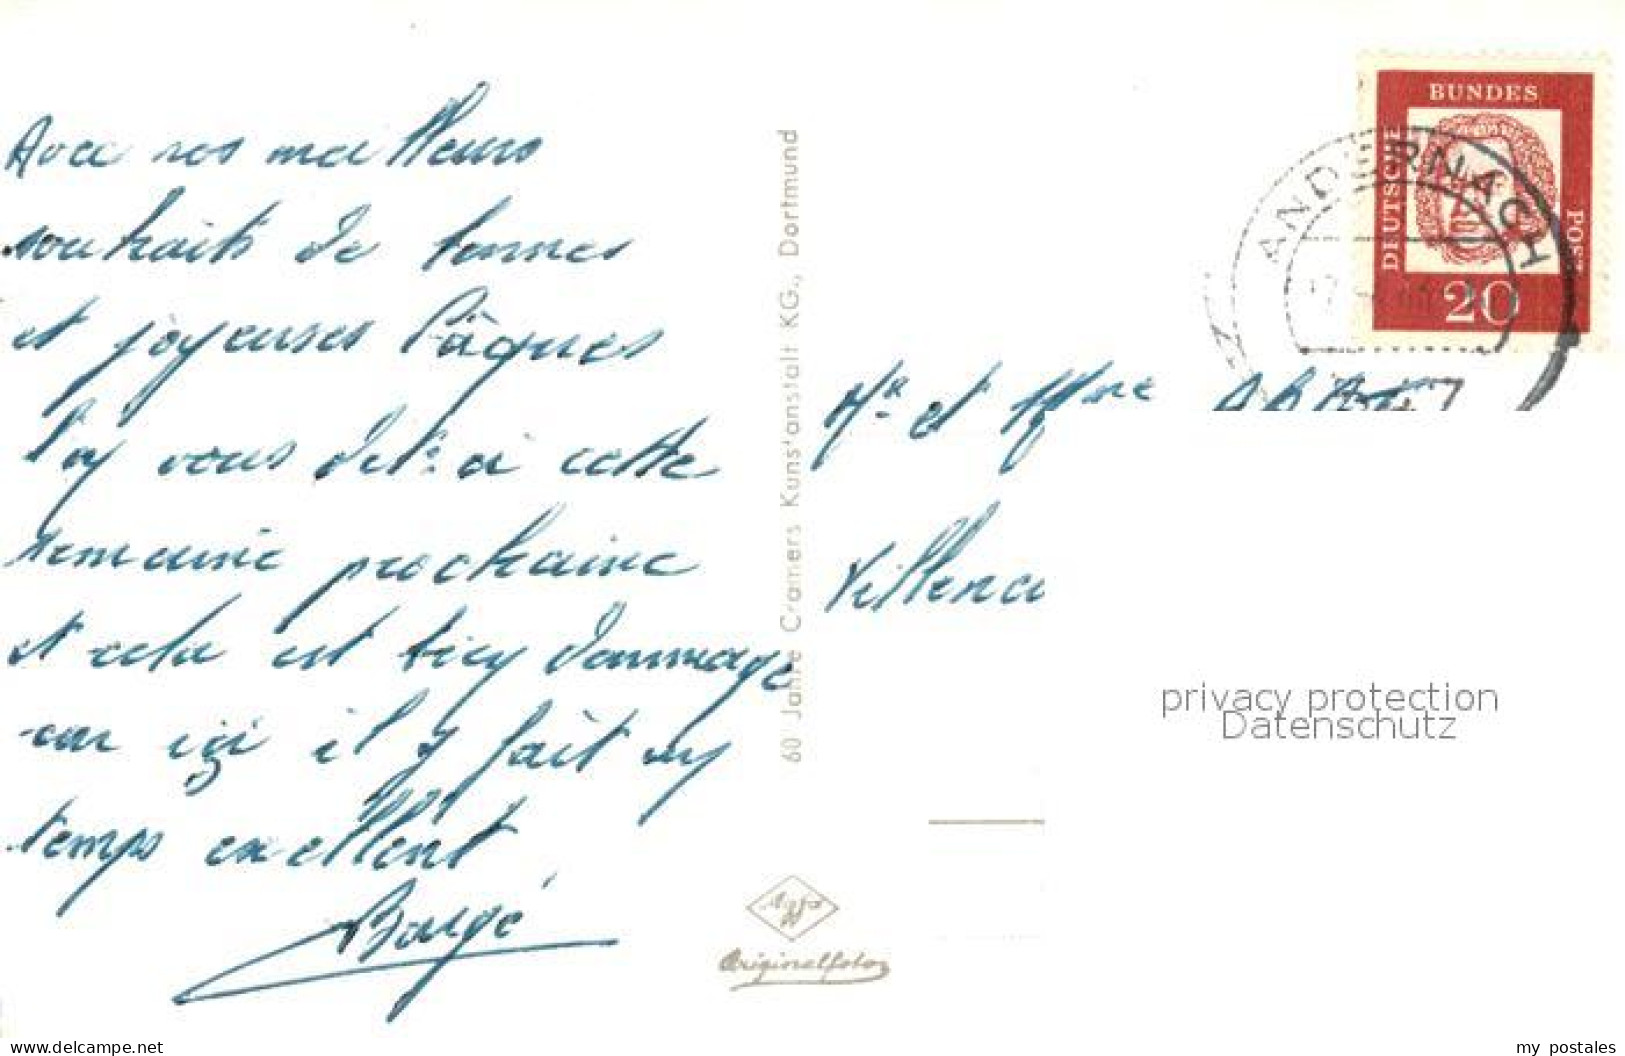 Avec nos meilleurs
souhaits de bonnes
et joyeuses Pâques
vous à cette
semaine prochaine
et cela est bien dommage
car ici il y fait un
temps excellent
60 Jahre Cramers Kunstanstalt KG., Dortmund
Agfa
Originalfoto
BUNDES
DEUTSCHE
POST
20
ANDERNACH
Mr et Mme
privacy protection
Datenschutz
www.delcampe.net
my_postales